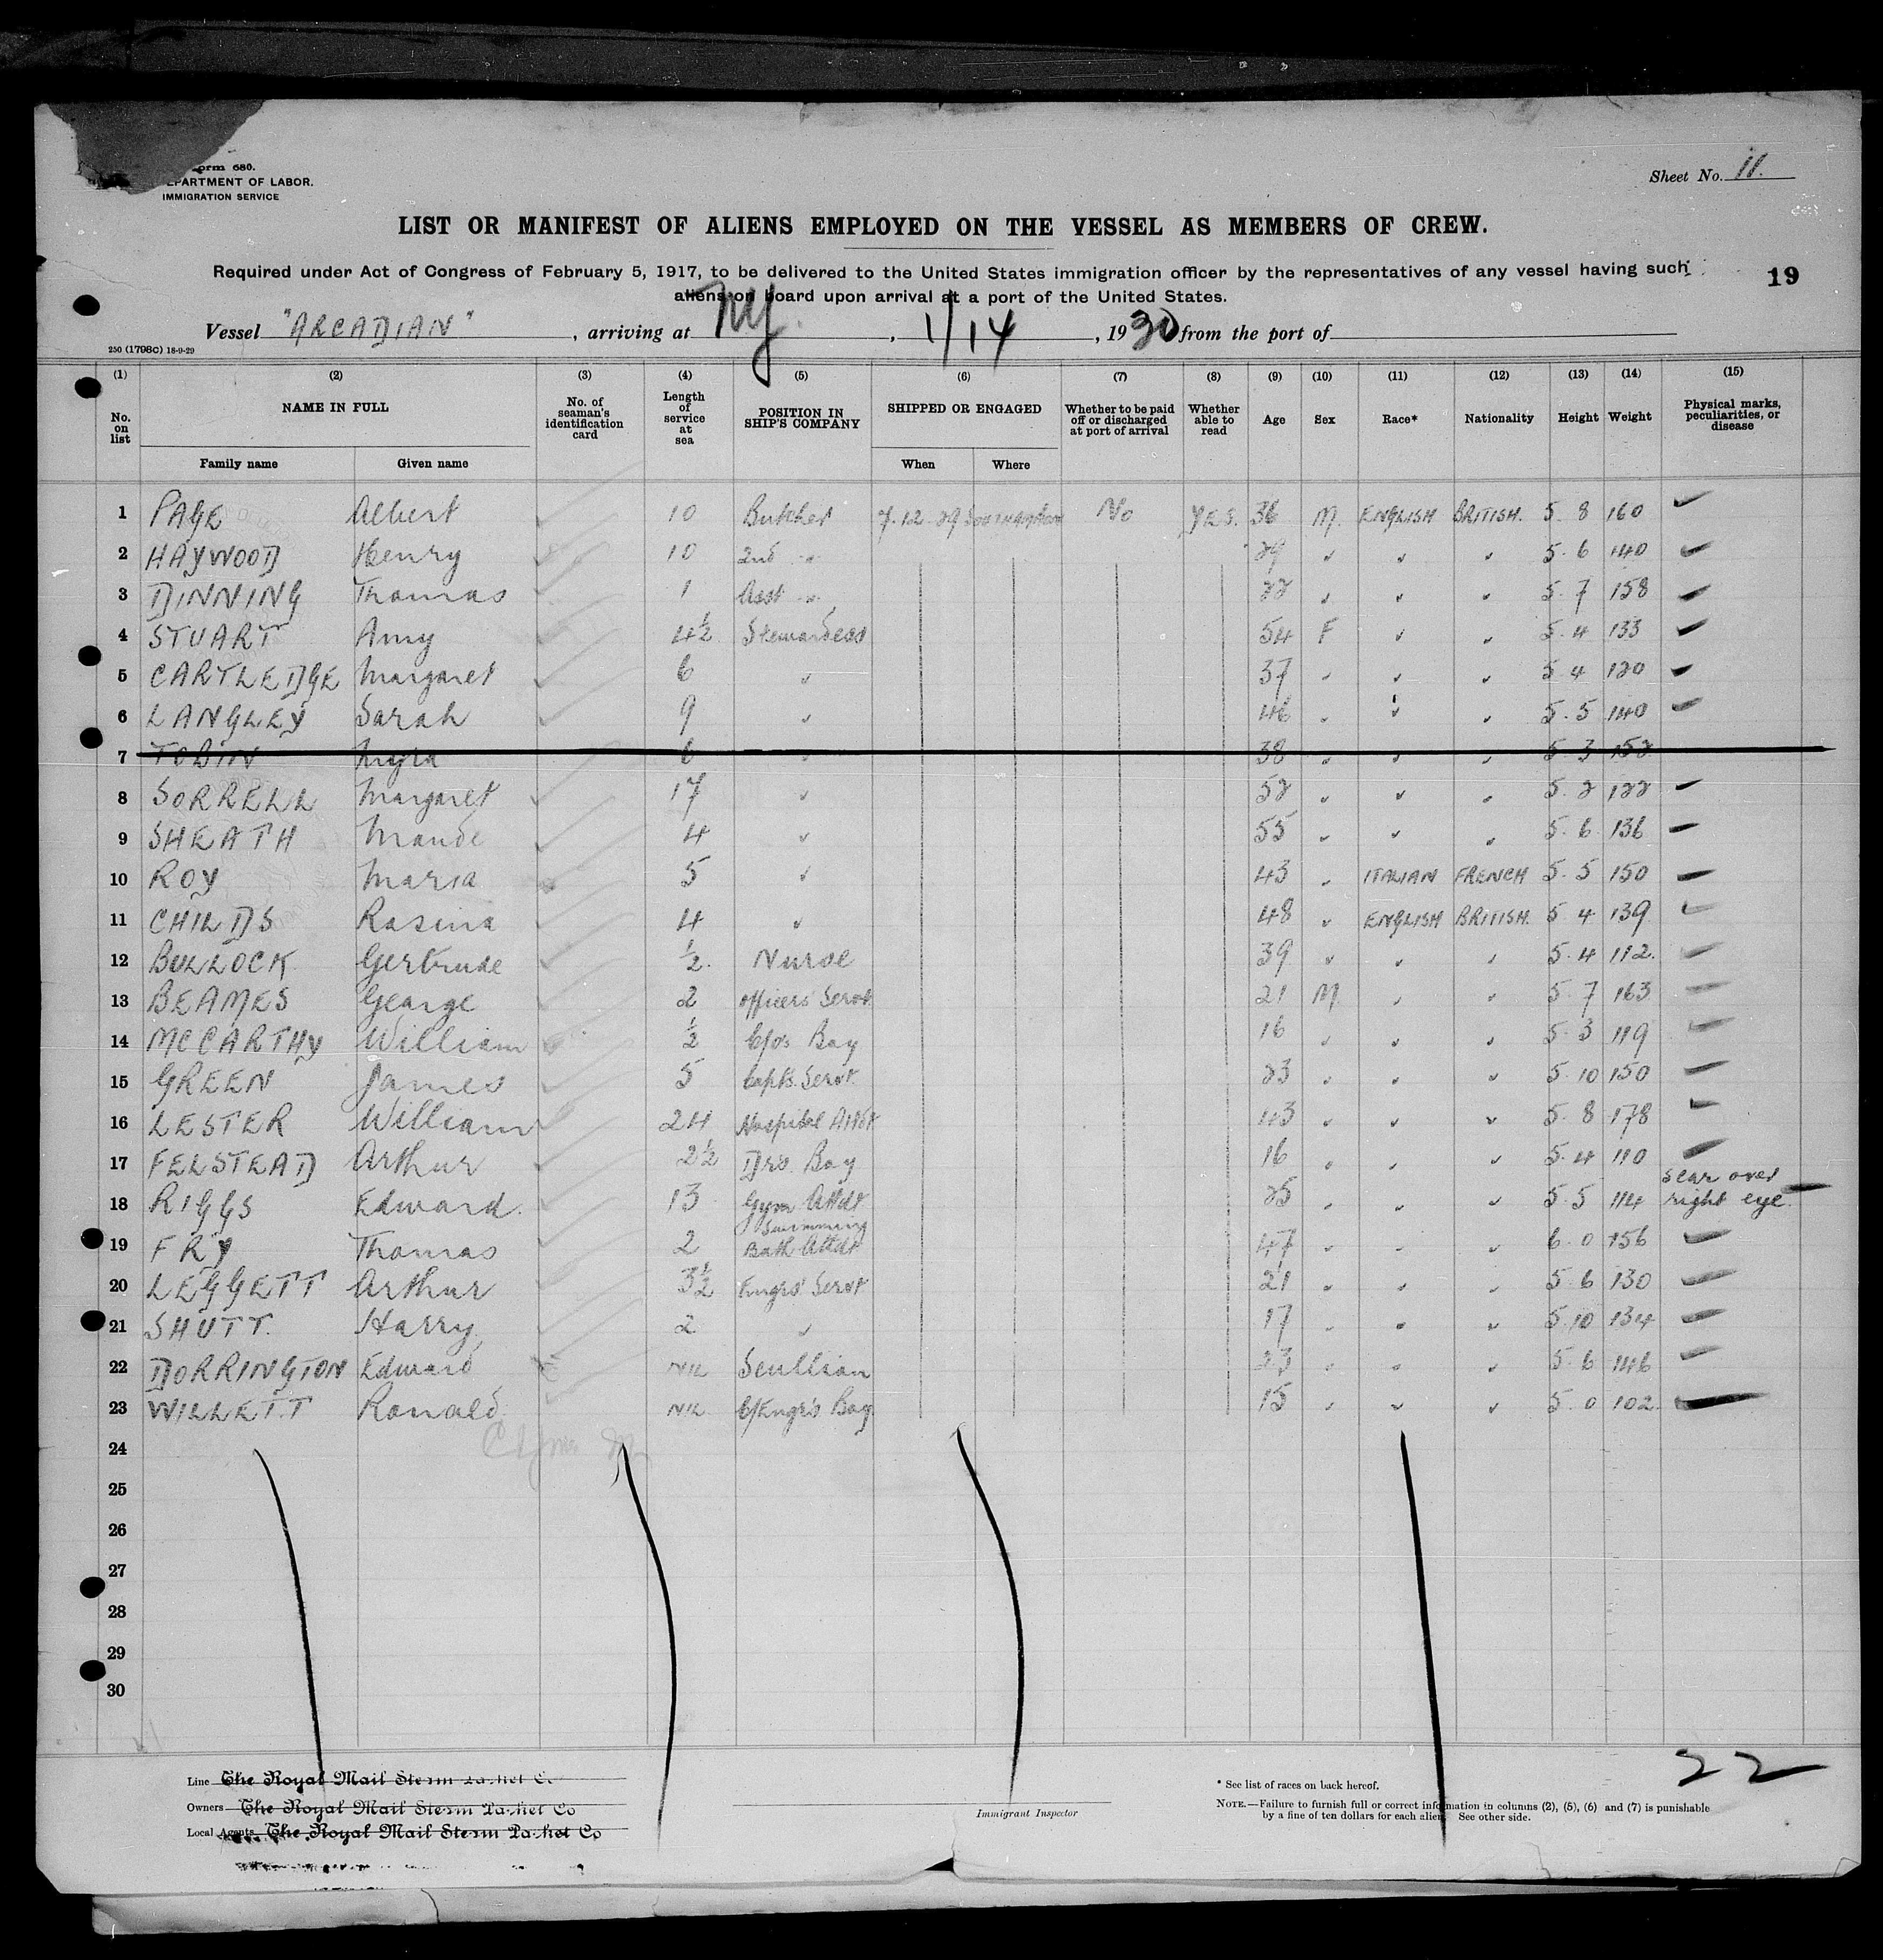 orm 680.
EPARTMENT OF LABOR.
IMMIGRATION SERVICE
Sheet No. 11.
LIST OR MANIFEST OF ALIENS EMPLOYED ON THE VESSEL AS MEMBERS OF CREW.
Required under Act of Congress of February 5, 1917, to be delivered to the United States immigration officer by the representatives of any vessel having such
aliens on board upon arrival at a port of the United States.
19
Vessel "ARCADIAN", arriving at NY., 1/14, 1930 from the port of
250 (1798C) 18-9-29
(1) (2) (3) (4) (5) (6) (7) (8) (9) (10) (11) (12) (13) (14) (15)
No. on list NAME IN FULL No. of seaman's identification card Length of service at sea POSITION IN SHIP'S COMPANY SHIPPED OR ENGAGED Whether to be paid off or discharged at port of arrival Whether able to read Age Sex Race* Nationality Height Weight Physical marks, peculiarities, or disease
Family name Given name When Where
1 PAGE Albert 10 Butcher 7.12.29 Southampton No YES. 36 M. ENGLISH BRITISH. 5 8 160
2 HAYWOOD Henry 10 2nd " 29 5.6 140
3 DINNING Thomas 1 Asst " 22 5.7 158
4 STUART Amy 4½ Stewardess 54 F 5.4 133
5 CARTLEDGE Margaret 6 37 5 4 120
6 LANGLEY Sarah 9 46 5.5 140
7 TOBIN Myra 6 38 5 3 152
8 SORRELL Margaret 17 52 5.2 122
9 SHEATH Maude 4 55 5.6 136
10 ROY Maria 5 43 ITALIAN FRENCH 5.5 150
11 CHILDS Rosina 4 48 ENGLISH BRITISH. 5 4 139
12 BULLOCK Gertrude ½. Nurse 39 5.4 112.
13 BEAMES George 2 officers' Servt 21 M. 5.7 163
14 MCCARTHY William ½ C/o's Boy 16 5.3 119
15 GREEN James 5 Capt's. Servt. 23 5.10 150
16 LESTER William 24 Hospital Attdt 43 5.8 178
17 FELSTEAD Arthur 2½ Dr's. Boy 16 5.4 110
18 RIGGS Edward. 13 Gym Attdt 25 5 5 114 scar over right eye.
19 FRY Thomas 2 Swimming Bath Attdt 47 6.0 156
20 LEGGETT Arthur 3½ Engrs' Servt 21 5.6 130
21 SHUTT. Harry 2 17 5.10 134
22 DORRINGTON Edward NIL Scullion 23 5.6 146
23 WILLETT Ronald NIL. C/Engr's Boy 15 5.0 102.
24
25
26
27
28
29
30
Line The Royal Mail Steam Packet Co
Owners The Royal Mail Steam Packet Co
Local Agents The Royal Mail Steam Packet Co
Immigrant Inspector
* See list of races on back hereof.
NOTE.—Failure to furnish full or correct information in columns (2), (5), (6) and (7) is punishable
by a fine of ten dollars for each alien. See other side.
22